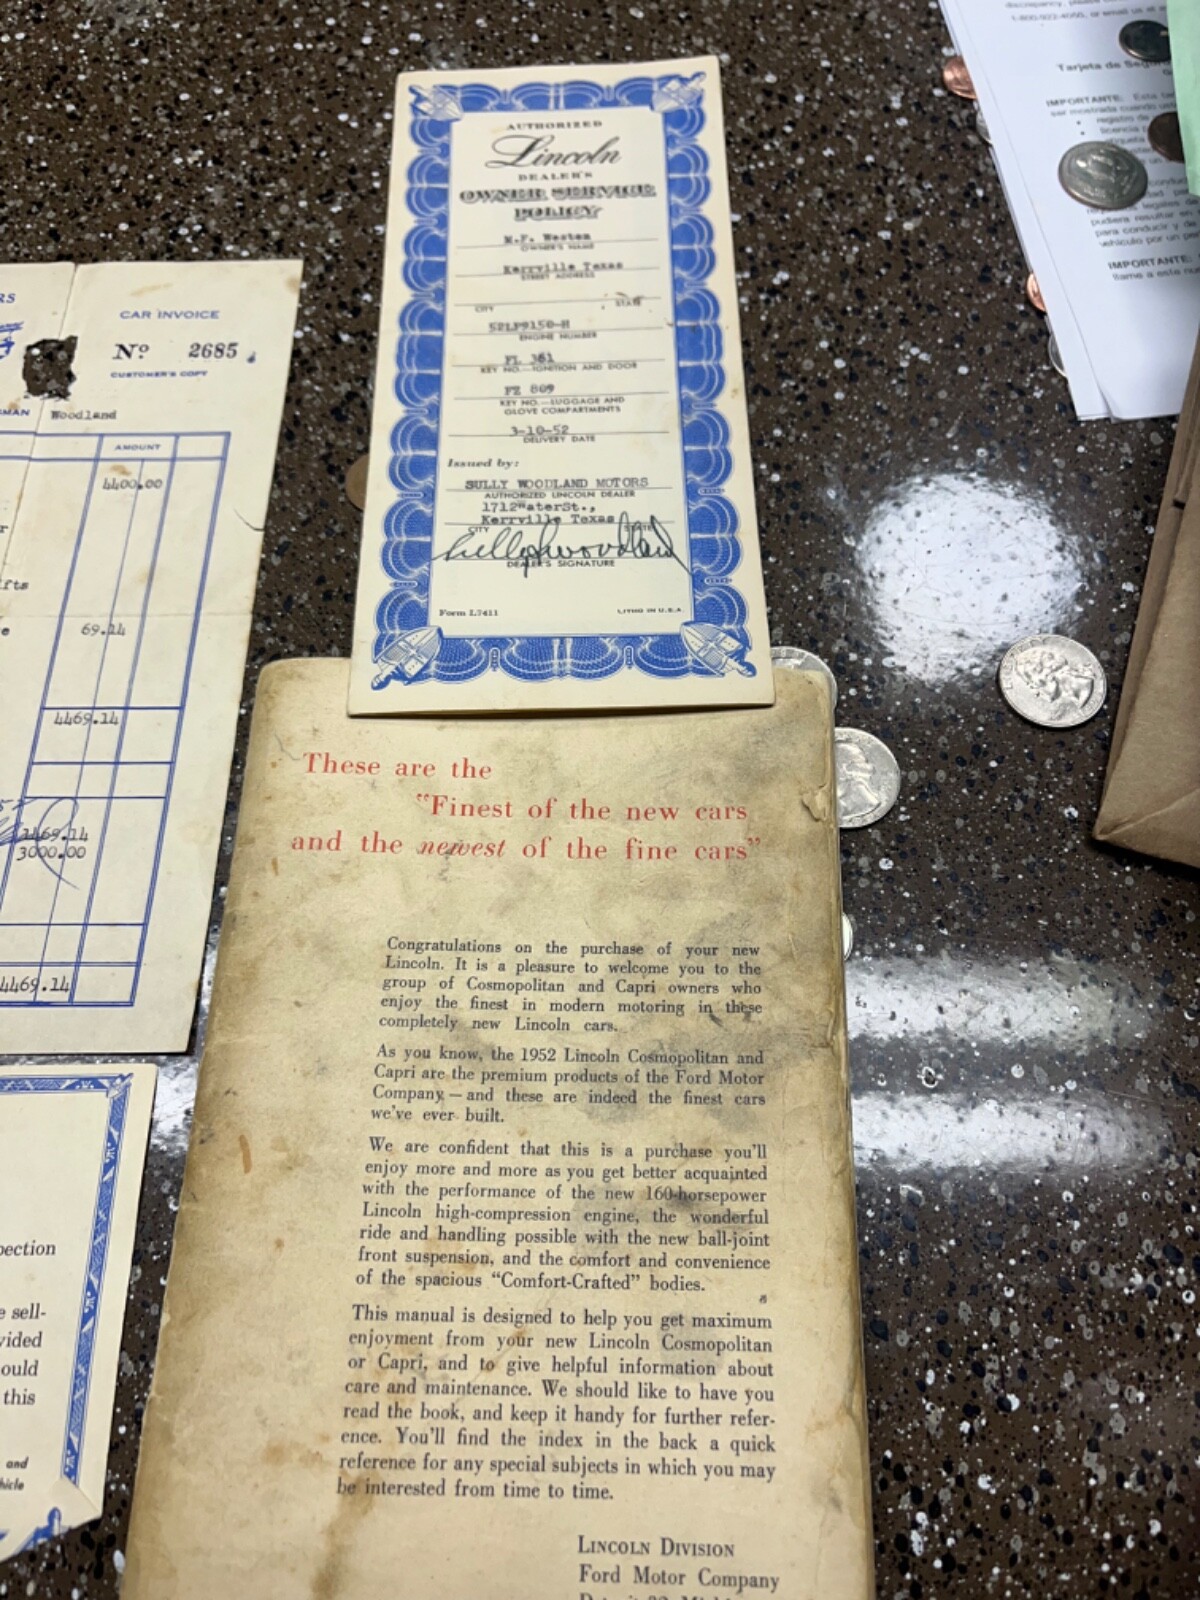 AUTHORIZED
Lincoln
DEALER'S
OWNER SERVICE
POLICY
M.F. Weston
OWNER'S NAME
Kerrville Texas
STREET ADDRESS
CITY STATE
52LP9150-H
ENGINE NUMBER
FL 361
KEY NO.—IGNITION AND DOOR
FZ 809
KEY NO.—LUGGAGE AND
GLOVE COMPARTMENTS
3-10-52
DELIVERY DATE
Issued by:
SULLY WOODLAND MOTORS
AUTHORIZED LINCOLN DEALER
1712WaterSt.,
Kerrville Texas
CITY STATE
DEALER'S SIGNATURE
Form L7411 LITHO IN U.S.A.
RS
CAR INVOICE
No 2685
CUSTOMER'S COPY
MAN Woodland
AMOUNT
4400.00
r
ifts
e 69.14
4469.14
1469.14
3000.00
4469.14
pection
e sell-
vided
ould
this
and
hicle
These are the
"Finest of the new cars
and the newest of the fine cars"
Congratulations on the purchase of your new
Lincoln. It is a pleasure to welcome you to the
group of Cosmopolitan and Capri owners who
enjoy the finest in modern motoring in these
completely new Lincoln cars.
As you know, the 1952 Lincoln Cosmopolitan and
Capri are the premium products of the Ford Motor
Company — and these are indeed the finest cars
we've ever built.
We are confident that this is a purchase you'll
enjoy more and more as you get better acquainted
with the performance of the new 160-horsepower
Lincoln high-compression engine, the wonderful
ride and handling possible with the new ball-joint
front suspension, and the comfort and convenience
of the spacious "Comfort-Crafted" bodies.
This manual is designed to help you get maximum
enjoyment from your new Lincoln Cosmopolitan
or Capri, and to give helpful information about
care and maintenance. We should like to have you
read the book, and keep it handy for further refer-
ence. You'll find the index in the back a quick
reference for any special subjects in which you may
be interested from time to time.
LINCOLN DIVISION
Ford Motor Company
discrepancy, please
1-800-922-4050, or email us at
Tarjeta de Segur
IMPORTANTE: Esta tar
ser mostrada cuando
registro de
licencia
pudiera resultar en
para conducir y de
vehículo por un per
IMPORTANTE:
llame a este